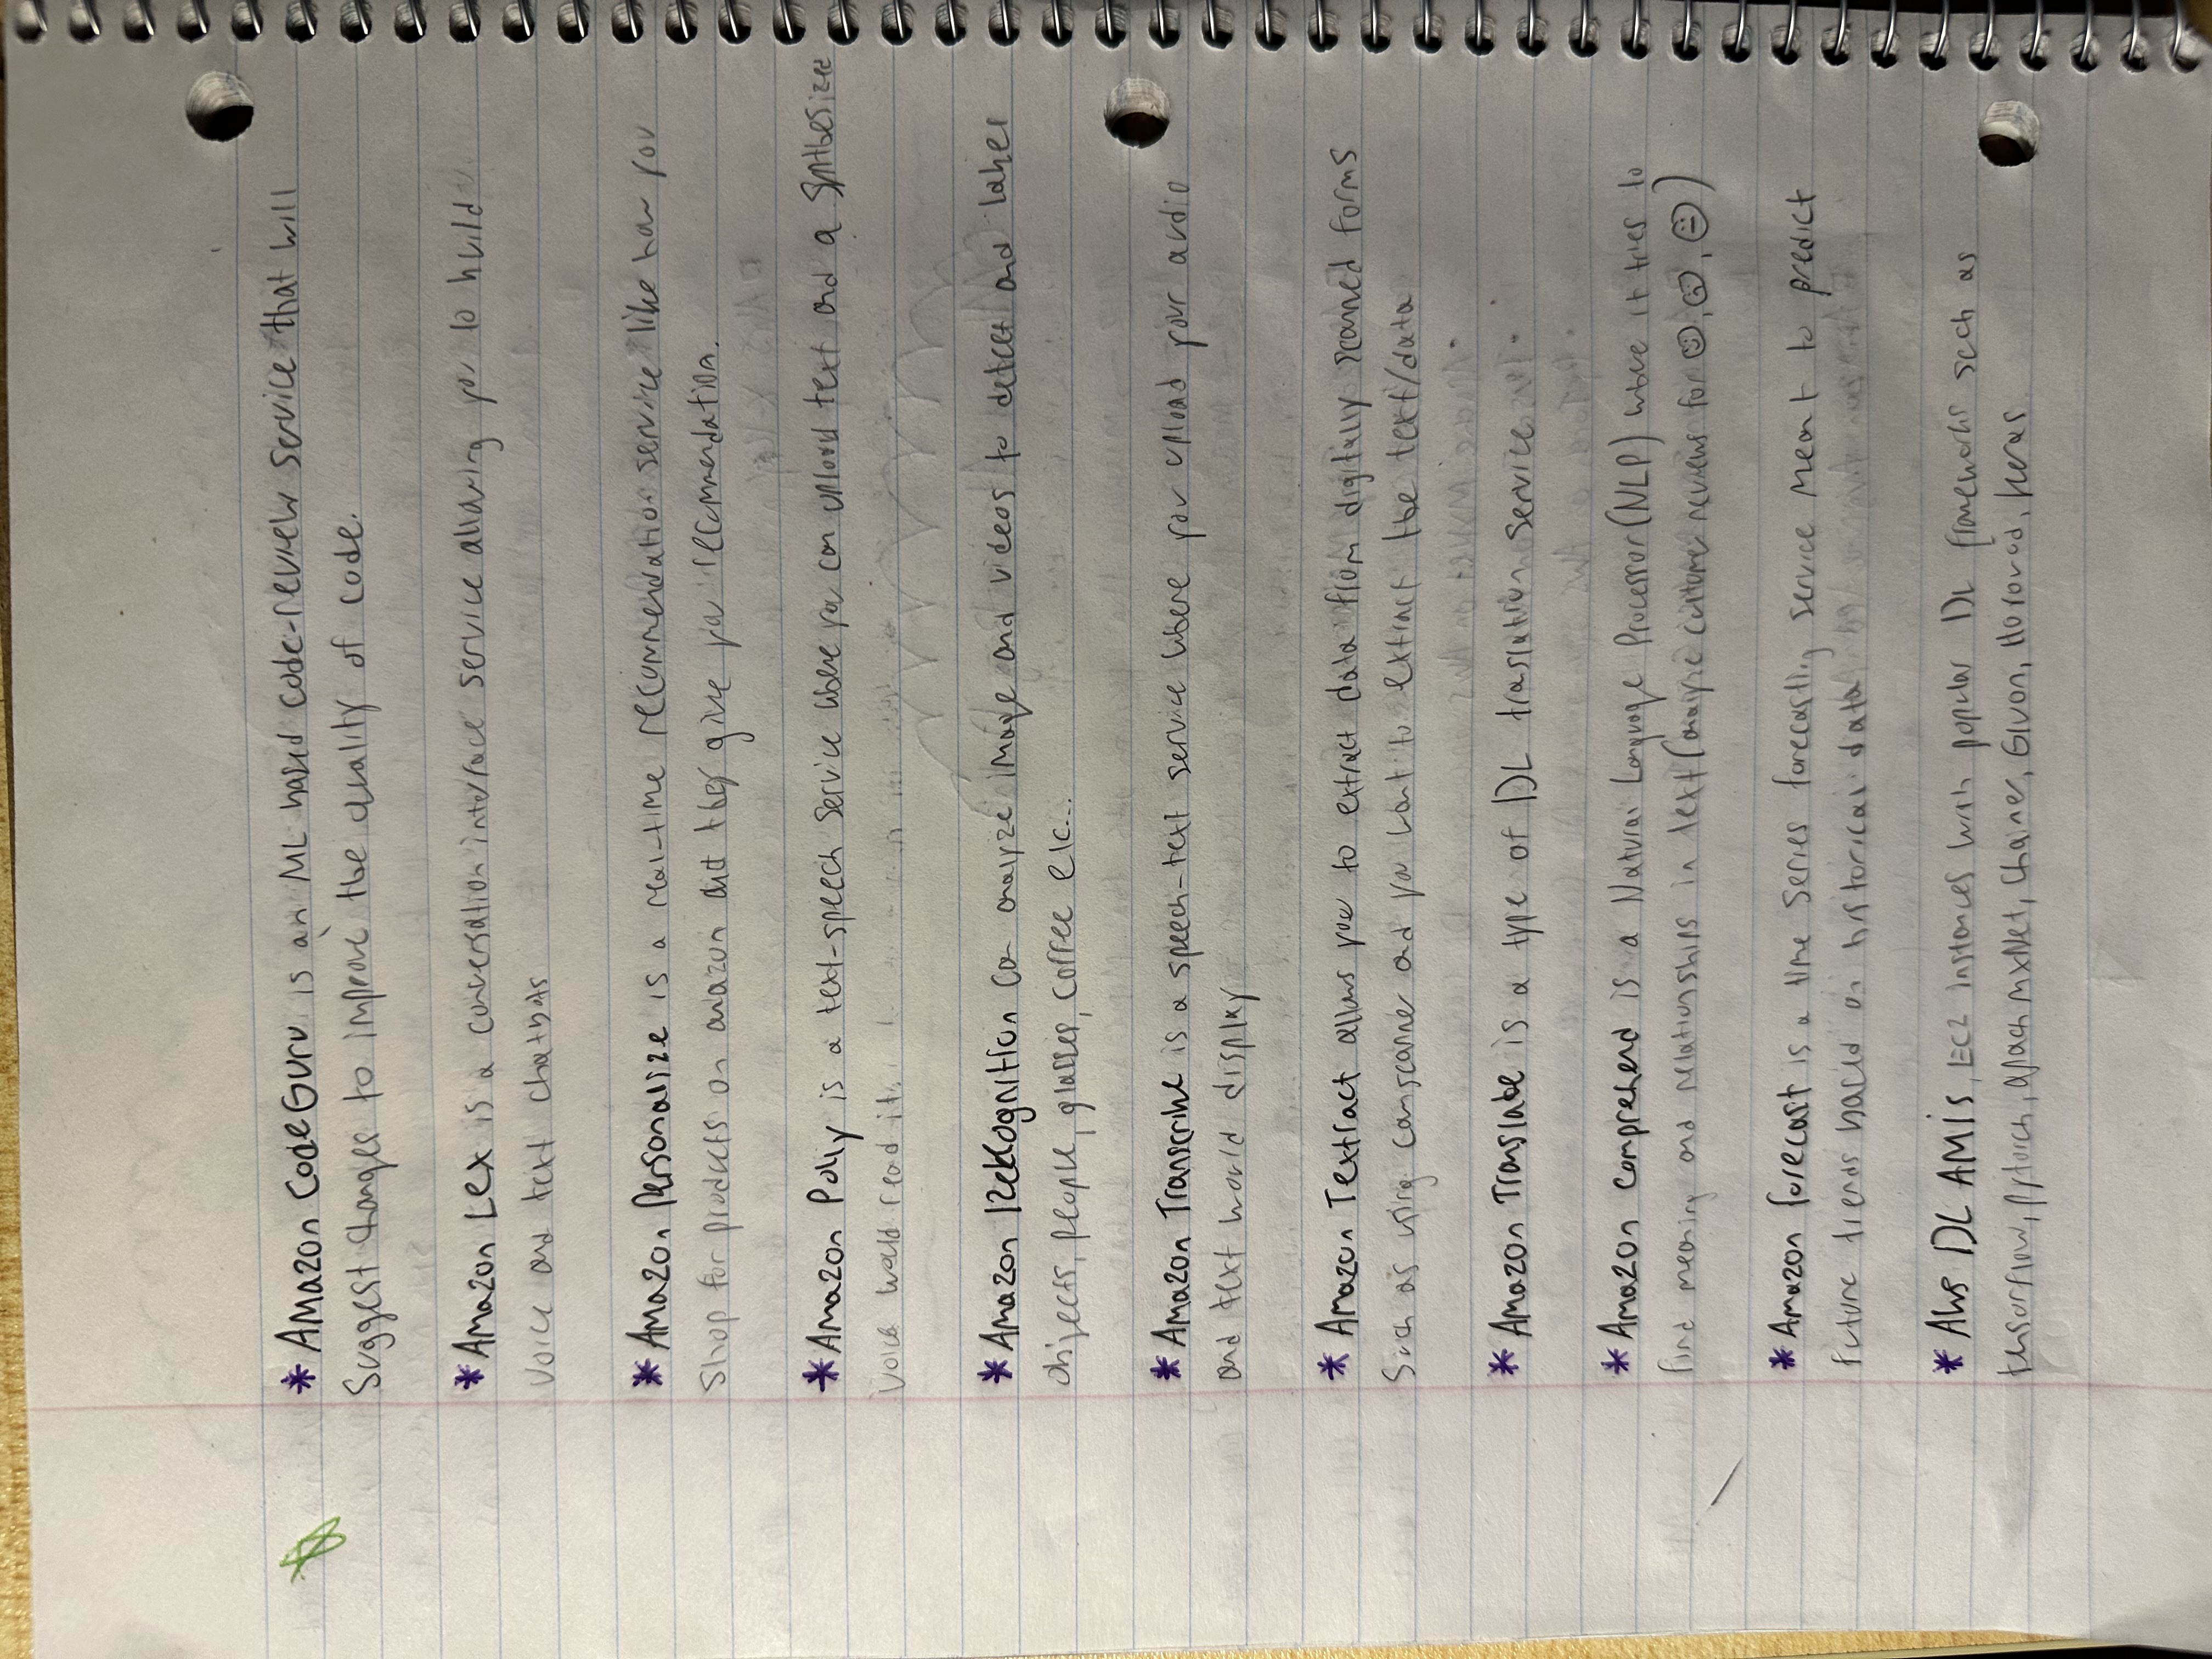 * Amazon CodeGuru is an ML based code-review service that will
suggest changes to improve the quality of code.
* Amazon Lex is a conversation interface service allowing you to build
voice and text chatbots
* Amazon Personalize is a real-time recommendation service like how you
shop for products on amazon and they give you recommendation.
* Amazon Polly is a text-speech service where you can upload text and a synthesized
voice would read it.
* Amazon Rekognition can analyze image and videos to detect and label
objects, people, glasses, coffee etc...
* Amazon Transcribe is a speech-text service where you upload your audio
and text would display
* Amazon Textract allows you to extract data from digitally scanned forms
Such as using camscanner and you want to extract the text/data
* Amazon Translate is a type of DL traslation service
* Amazon Comprehend is a Natural Language Processor (NLP) where it tries to
find meaning and relationships in text (analyze customer reviews for ☺, ☹, 😐)
* Amazon forecast is a time series forecasting service meant to predict
future trends based on historical data
* AWS DL AMIs, EC2 instances with popular DL frameworks such as
tensorflow, pytorch, apach mxNet, Chainer, Gluon, Horovod, Keras